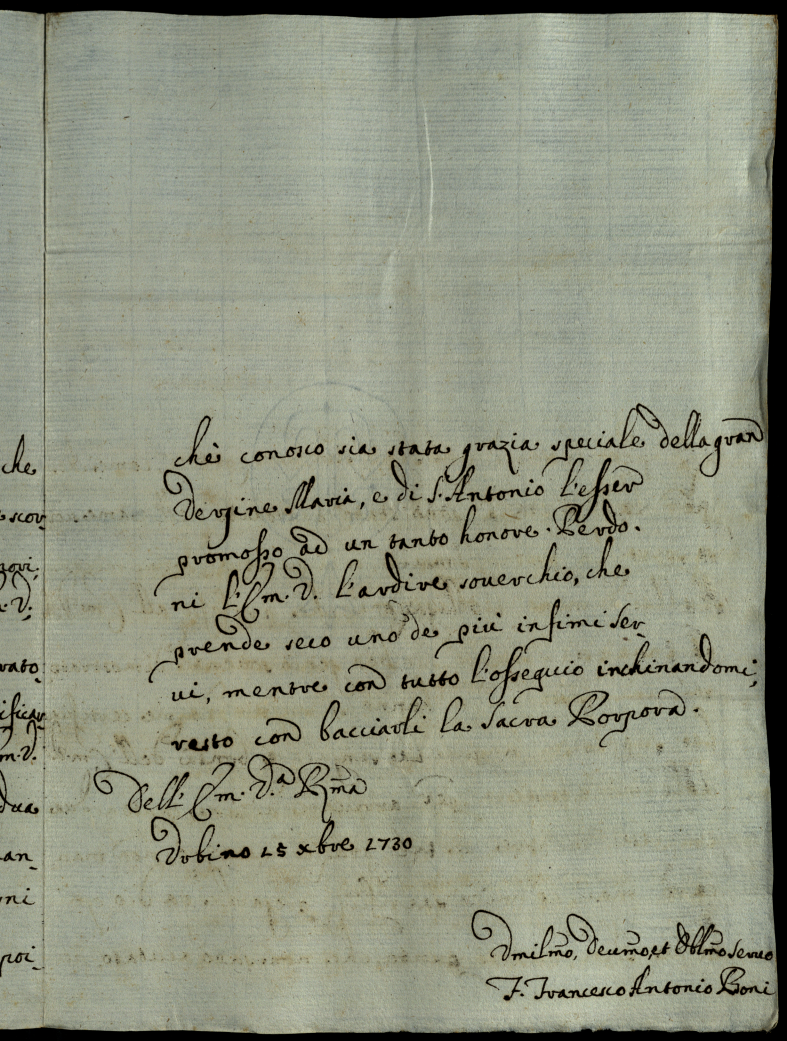 che
scor-
novi-
a. V.
rato-
ificar
m. V.
dua
an-
ni
poi-
chè conosco sia stata grazia speciale della gran
Vergine Maria, e di S. Antonio l'esser
promosso ad un tanto honore. Perdo-
ni l'Em. V. l'ardire soverchio, che
prende seco uno de più infimi ser-
vi, mentre con tutto l'ossequio inchinandomi,
resto con bacciarli la Sacra Porpora.
Dell' Em. V.a Rma
Urbino 15 xbre 1730
Vmilmo, Devmo, et Obblmo Servo
F. Francesco Antonio Boni